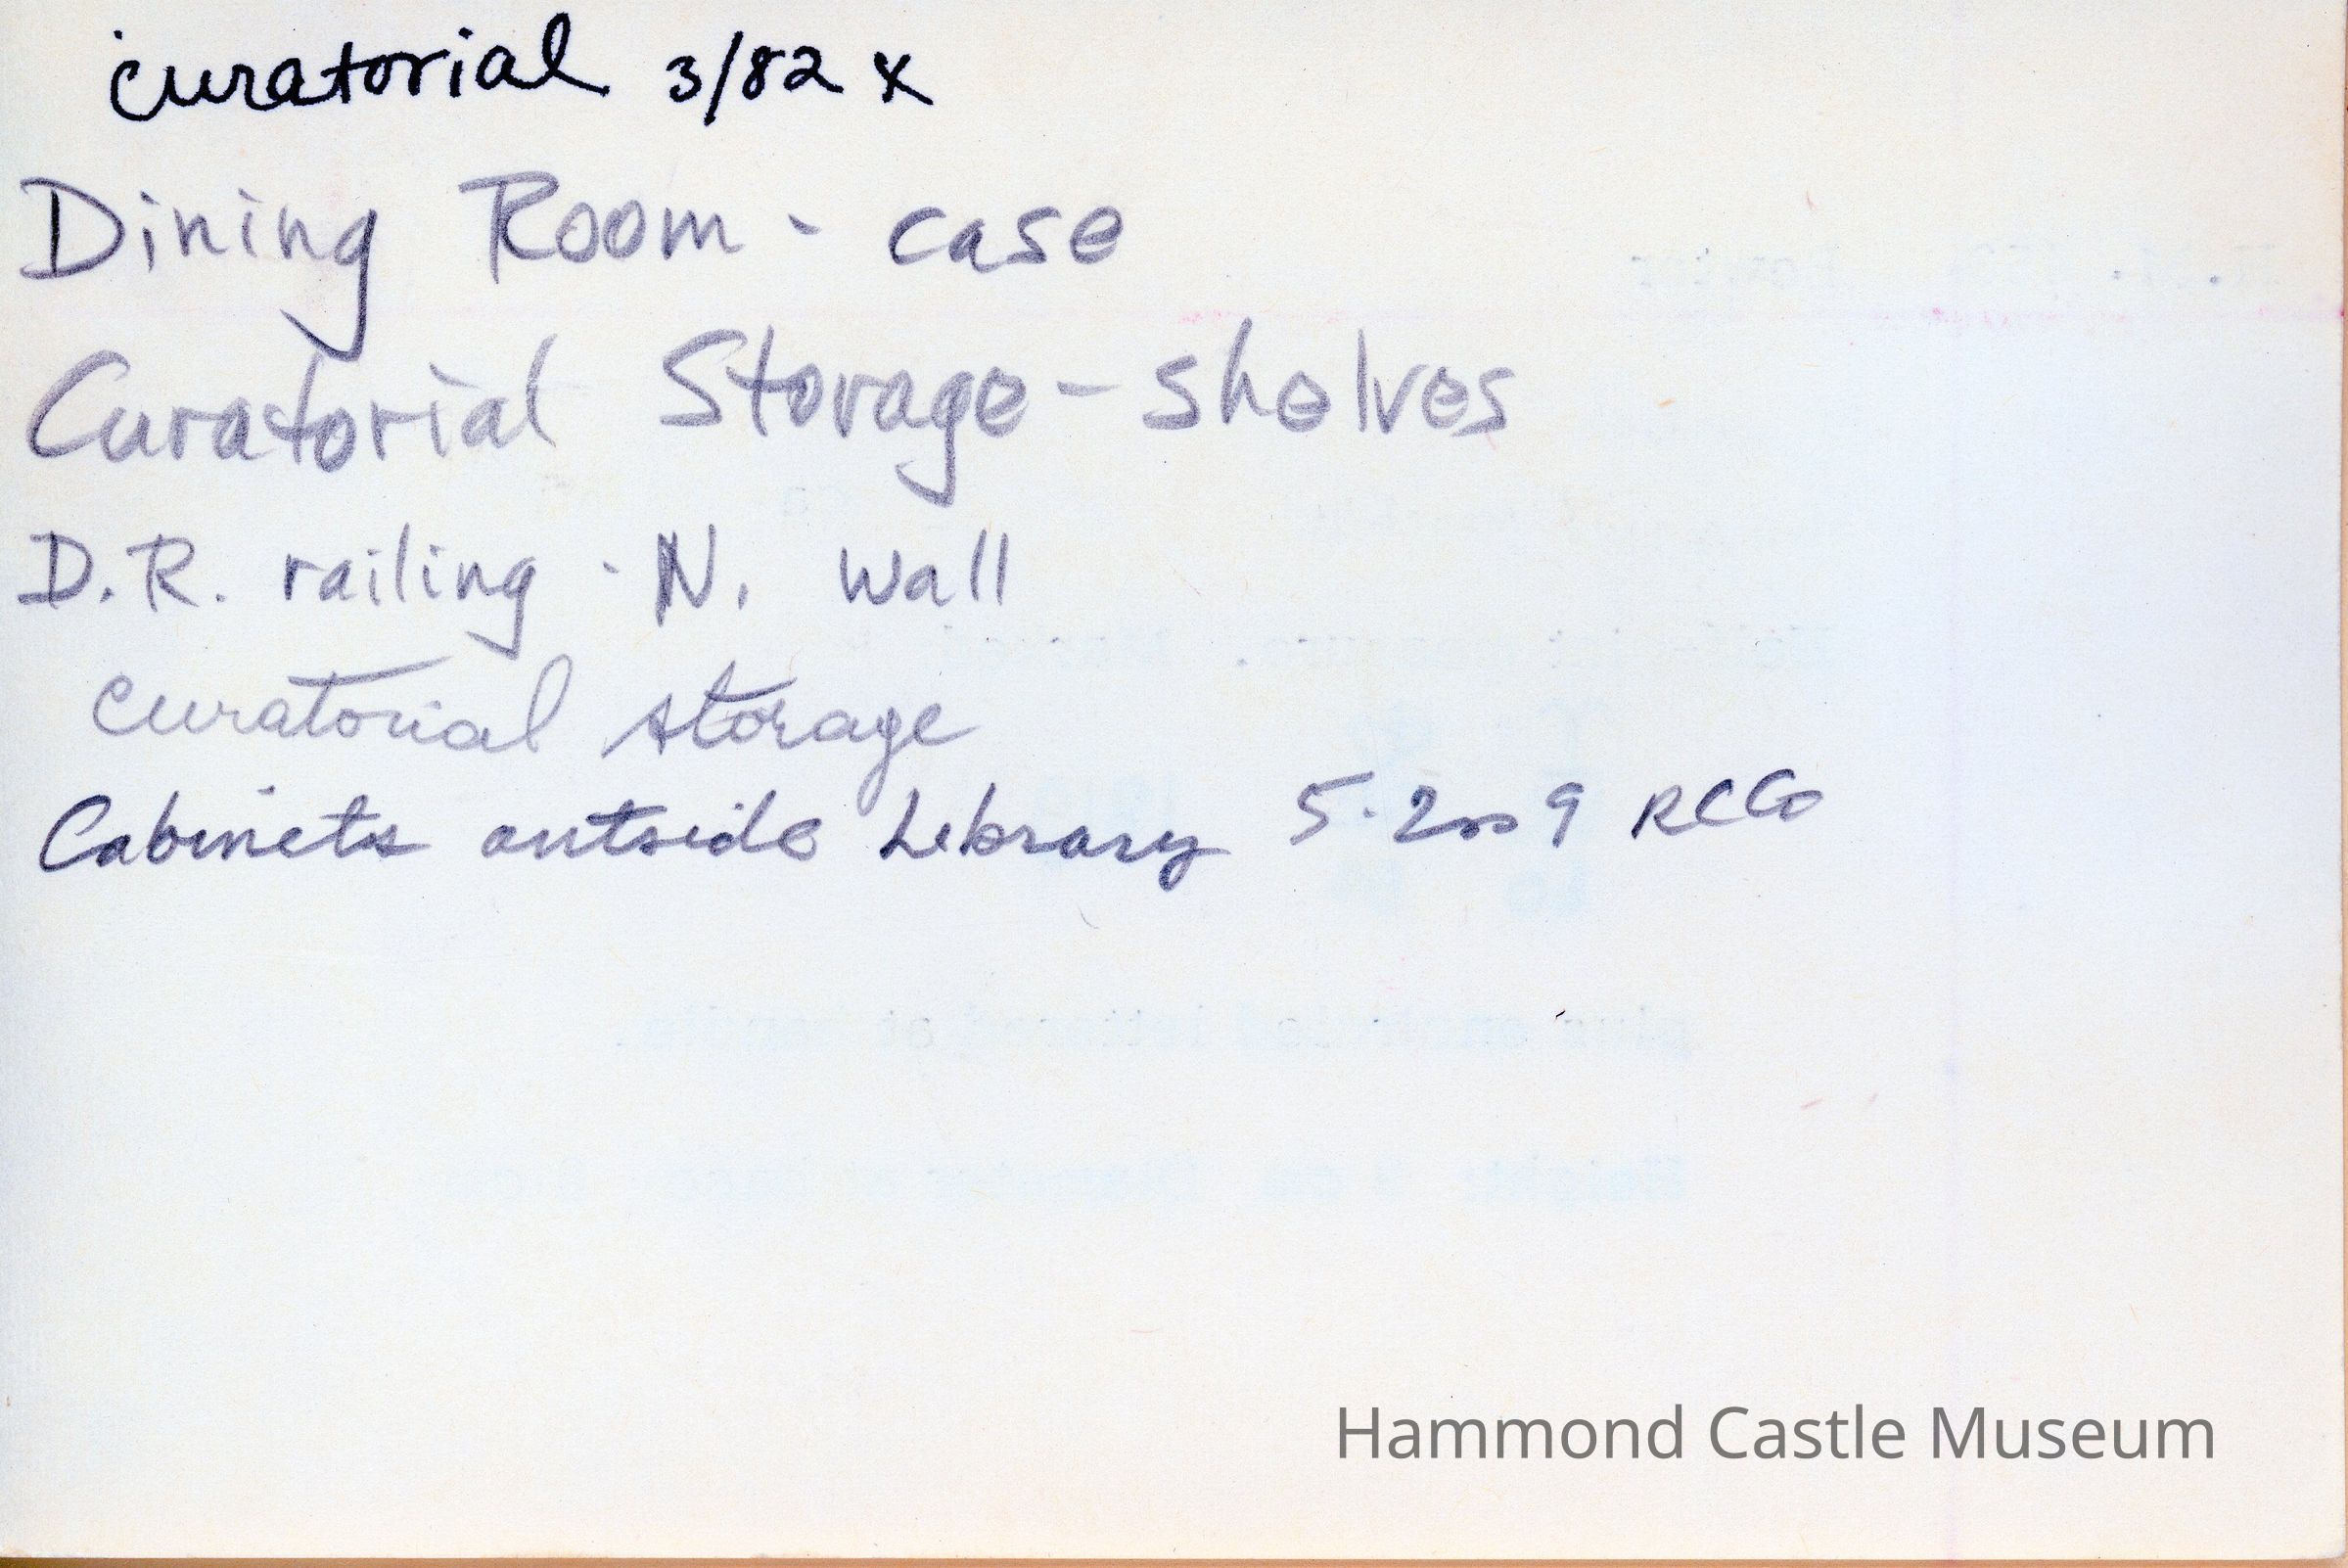 curatorial 3/82 x
Dining Room - case
Curatorial Storage - shelves
D.R. railing - N. wall
curatorial storage
Cabinets outside Library 5.2009
Hammond Castle Museum